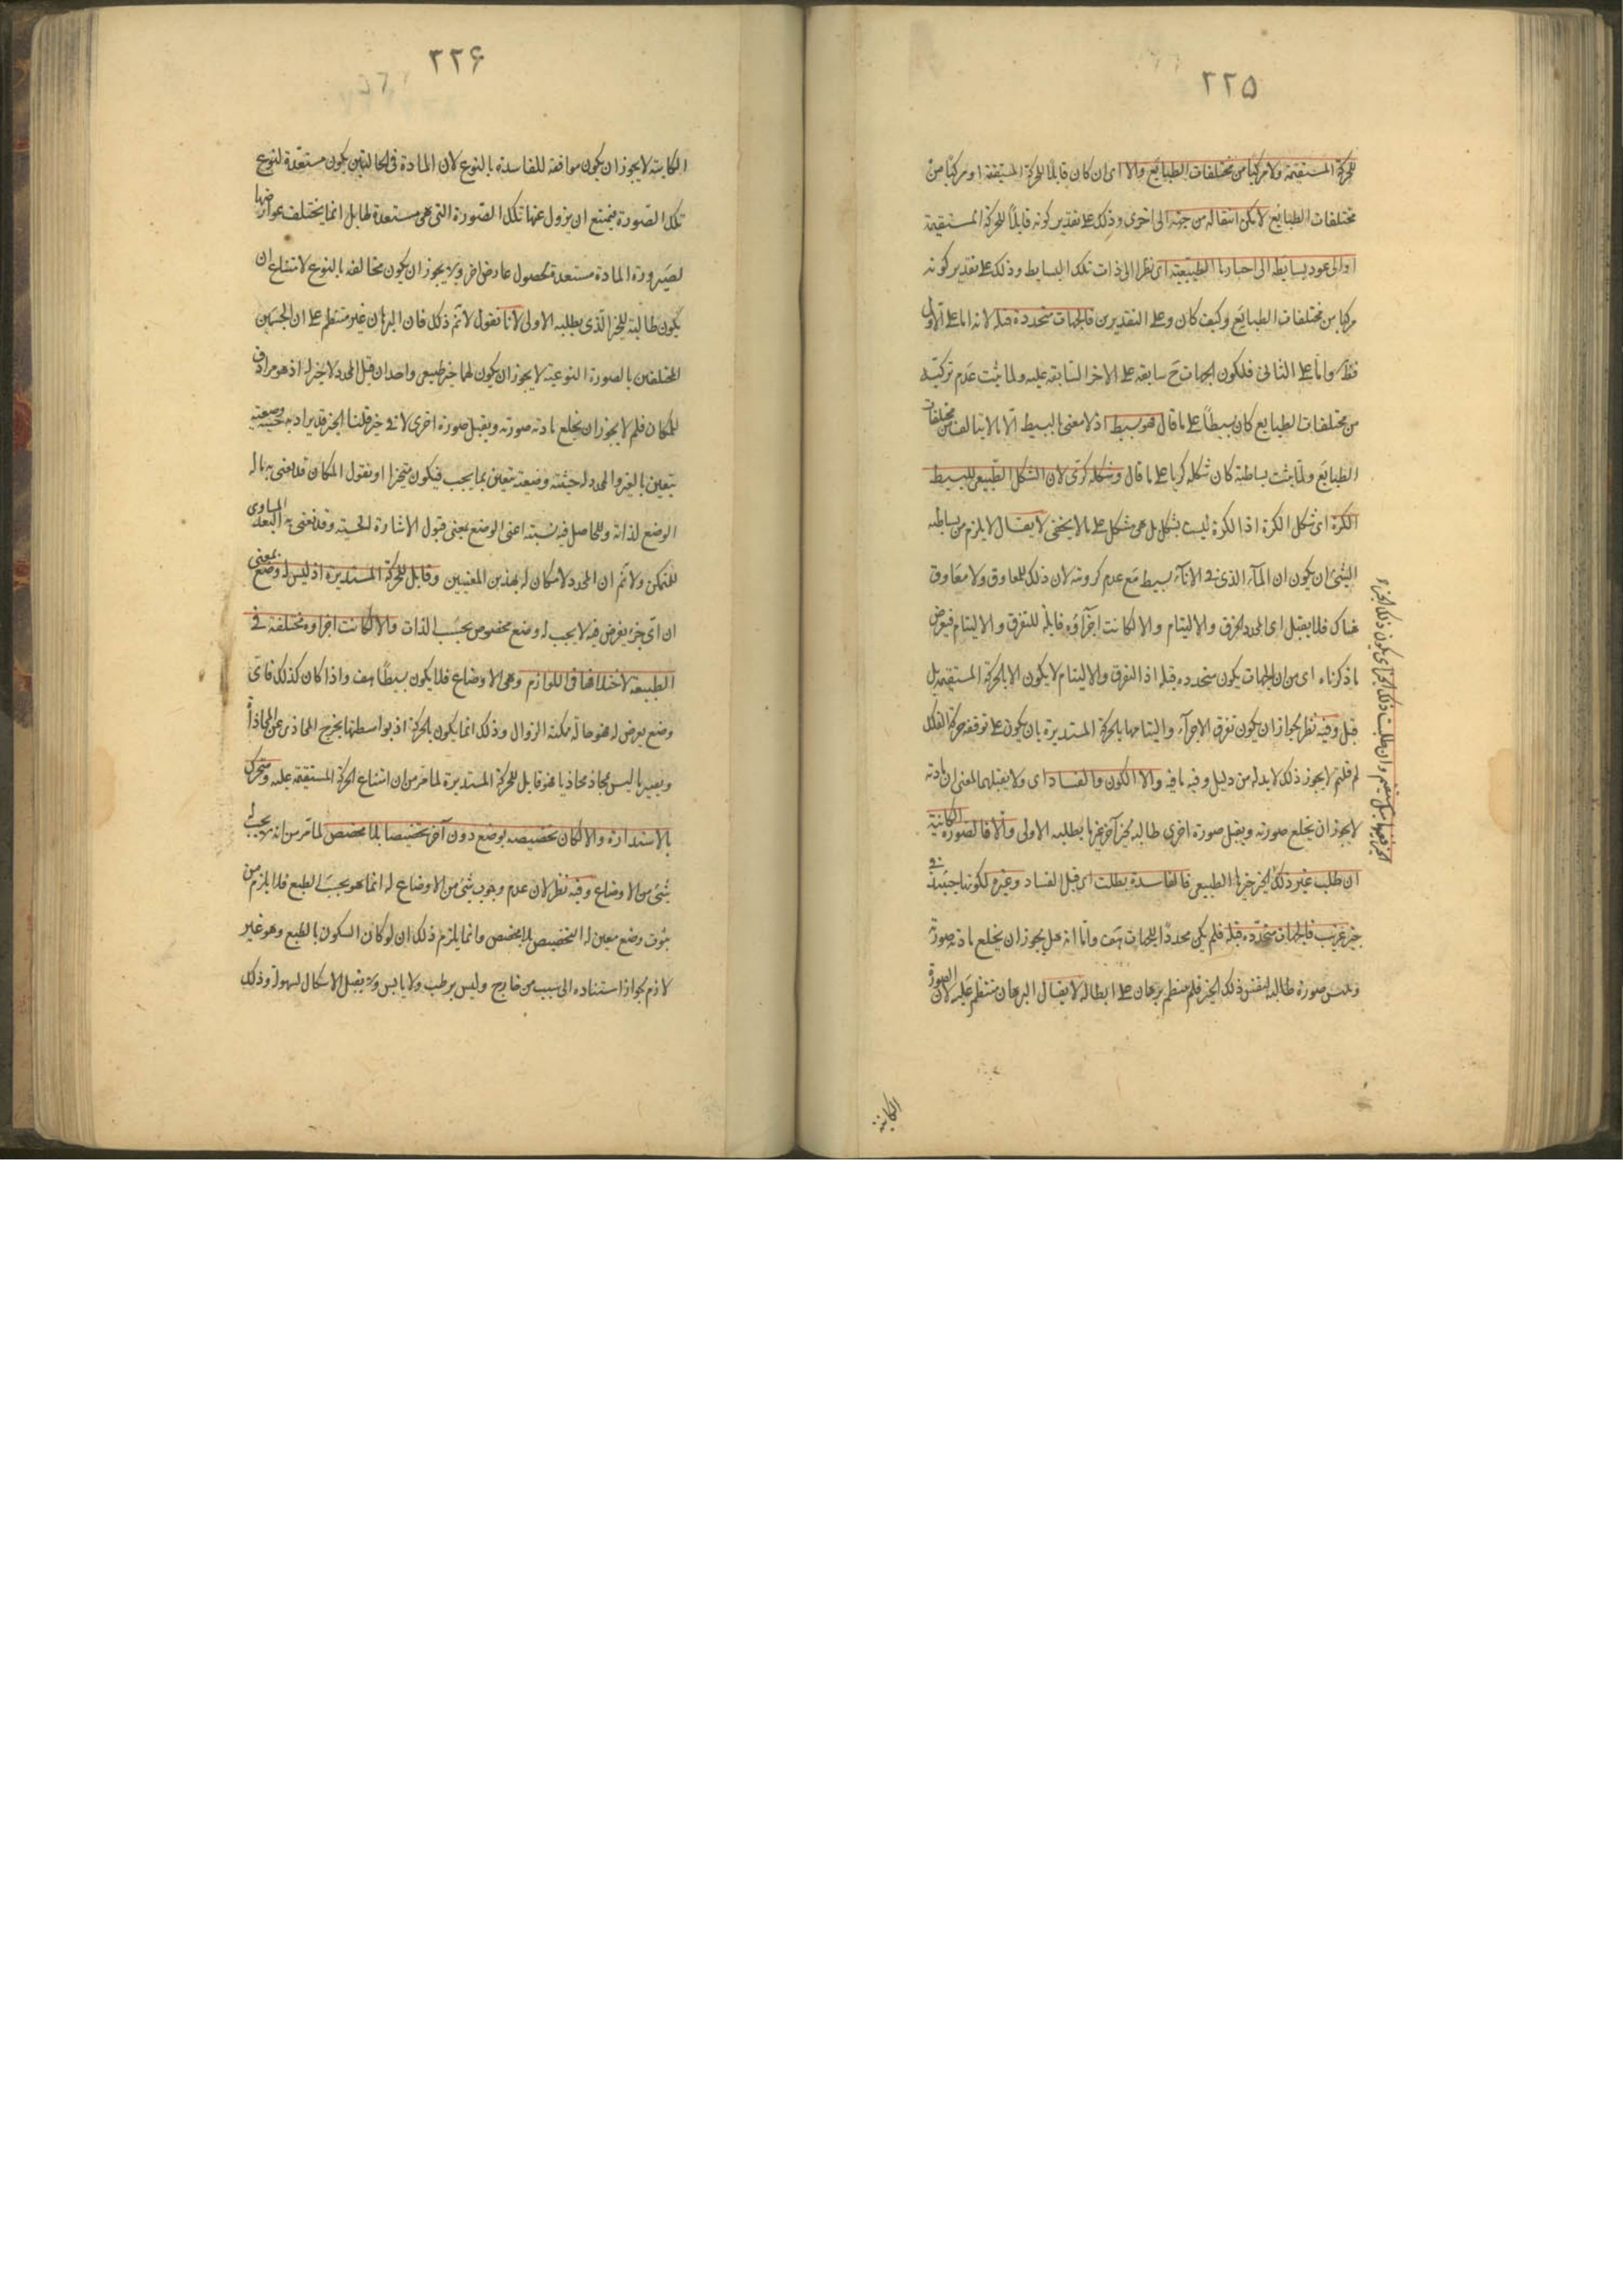 ٢٢٥
للحركة المستقيمة ولا مركبا من مختلفات الطبايع والا اى ان كان قابلا للحركة المستقيمة او مركبا من
مختلفات الطبايع لامكن انتقاله من جهة الى اخرى وذلك على تقدير كونه قابلا للحركة المستقيمة
او الى عود بسايطه الى احيازها الطبيعية اى نظرا الى ذات تلك البسايط وذلك على تقدير كونه
مركبا من مختلفات الطبايع وكيف كان وعلى التقديرين فالجهات متحددة قبله لانه اما على الاول
فظ واما على الثانى فلكون الجهات ح سابقة على الاحيا السابقة عليه ولما ثبت عدم تركبه
من مختلفات الطبايع كان بسيطا على ما قال فهو بسيط اذ لا معنى للبسيط الا ما لا يتالف من مختلفات
الطبايع ولما ثبت بساطته كان شكله كريا على ما قال وشكله كرى لان الشكل الطبيعى للبسيط
الكرة اى شكل الكرة اذ الكرة ليست بشكل بل هى مشكل على ما لا يخفى لا يقال لا يلزم من بساطة
الشئ ان يكون ان المآء الذى فى الانآء بسيط مع عدم كرويته لان ذلك للمعاوق ولا معاوق
هناك فلا يقبل اى المحدد الخرق والالتيام والا لكانت اجزآؤه قابلة للتفرق والالتيام فيعرض
ما ذكرناه اى من ان الجهات يكون متحددة قبله اذ التفرق والالتيام لا يكون الا بالحركة المستقيمة بل
قيل وفيه نظر لجواز ان يكون تفرق الاجزآء والتيامها بالحركة المستديرة بان يكون على توقفه حركة الفلك
لم قلتم لا يجوز ذلك لا بد له من دليل وفيه ما فيه والا الكون والفساد اى ولا يقبلهما لمعنى ان مادته
لا يجوز ان يخلع صورته ويقبل صورة اخرى طالبة لحيز آخر غير ما يطلبه الاولى والا فالصورة الكائنة
ان طلبت غير ذلك الحيز حيزها الطبيعى فالفاسدة بطلت اى قبل الفساد وغيره لكونها حينئذ فى
حيز غريب فالجهات متحددة قبله فلم يكن محددا للجهات هف واما انه هل يجوز ان يخلع مادته صورة
ويلبس صورة طالبة لنفس ذلك الحيز فلم ينتظم برهان على ابطاله لا يقال البرهان منتظم عليه لان الصورة
الكاينة
٢٢۶
الكاينة لا يجوز ان يكون موافقة للفاسدة بالنوع لان المادة فى الحالتين يكون مستعدة لنوع
تلك الصورة فيمتنع ان يزول عنها تلك الصورة التى هى مستعدة لها بل انما يختلف عوارضها
لصيرورة المادة مستعدة لحصول عارض اخر ولا يجوز ان يكون مخالفة بالنوع لامتناع ان
يكون طالبة للحيز الذى يطلبه الاولى لانا نقول لا تم ذلك فان البرهان غير منتظم على ان الجسمين
المختلفين بالصورة النوعية لا يجوز ان يكون لهما حيز طبيعى واحد ان قيل المحدد لا حيز له اذ هو مرادف
للمكان فلم لا يجوز ان يخلع مادته صورته ويقبل صورة اخرى لا فى حيز قلنا الحيز قد يراد به حيثية وضعية
يتعين بالغير والمحدد له حيثية وضعية يتعين بما يجب فيكون متحيزا او نقول المكان قد نعنى به ما له
الوضع لذاته وللحاصل فيه نسبته اعنى الوضع بمعنى قبول الاشارة الحسية وقد نعنى به البعد المساوى
للمتمكن ولا تم ان المحدد لا مكان له بهذين المعنيين وقابل للحركة المستديرة اذ ليس له وضع بمعنى
ان اى جزء يفرض فيه لا يجب له وضع مخصوص بحسب الذات والا لكانت اجزاوه مختلفة فى
الطبيعة لاختلافها فى اللوازم وهى الاوضاع فلا يكون بسيطا هف واذا كان كذلك فاى
وضع يعرض له فهو حالة ممكنة الزوال وذلك انما يكون بالحركة اذ بواسطتها يخرج المحاذى عن المحاذاة
ويصير ما ليس بمحاذ محاذيا فهو قابل للحركة المستديرة لما مر من ان امتناع الحركة المستقيمة عليه ومتحرك
بالاستدارة والا لكان تخصيصه بوضع دون آخر تخصيصا بلا مخصص لما مر من انه لا يجب له
شئ من الاوضاع وفيه نظر لان عدم وجوب شئ من الاوضاع له انما هو بحسب الطبع فلا يلزم من
ثبوت وضع معين له التخصيص بلا مخصص وانما يلزم ذلك ان لو كان السكون بالطبع وهو غير
لازم لجواز استناده الى سبب من خارج وليس برطب ولا يابس والا يقبل الاشكال بسهولة وذلك